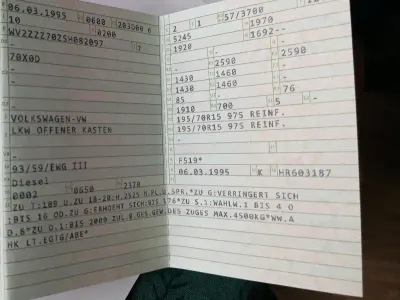 06.03.1995 0600 203D00 0
10 0200
WV2ZZZ70ZSH082097 7
-
70X0D
-
VOLKSWAGEN-VW
LKW OFFENER KASTEN
-
93/59/EWG III
Diesel
0002 0650 2370
2 1 57/3700
5245 1970
1920 1692--
-
- 2590 2590
1430 1460 -
1430 1460 -
85 - 76
1910 700 5 -
195/70R15 97S REINF.
195/70R15 97S REINF.
-
-
FS19*
06.03.1995 K HR603187
ZU T:109 U.ZU 18-20:H.2525 M.PL.U.SPR.*ZU G:VERRINGERT SICH
:BIS 16 OD.ZU G:ERHOEHT SICH:BIS 176*ZU S.1:WAHLW.1 BIS 4 O
D.6*ZU O.1:BIS 2000 ZUL.B.GES.GEW.DES ZUGES MAX.4500KG*WW.A
HK LT.EGTG/ABE*